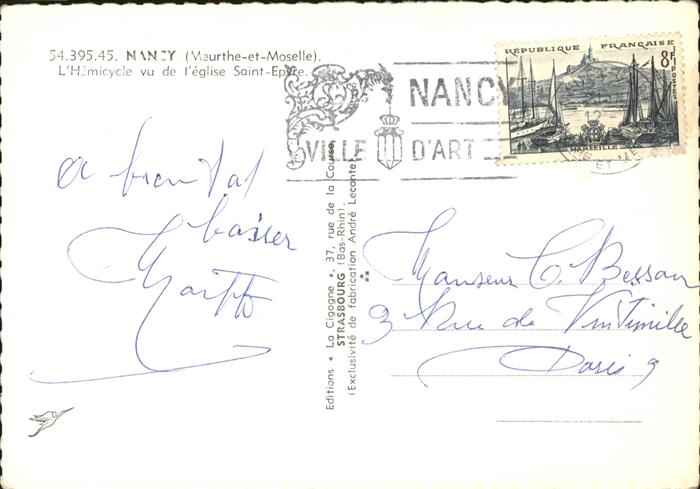 54.395.45. NANCY (Meurthe-et-Moselle).
L'Hémicycle vu de l'église Saint-Epvre.
NANCY
VILLE D'ART
RÉPUBLIQUE FRANÇAISE
8F
POSTES
MARSEILLE
A bientôt
baiser
Editions « La Cigogne », 37, rue de la Course,
STRASBOURG (Bas-Rhin).
(Exclusivité de fabrication André Leconte)
**
Monsieur C. Besson
3 Rue de Vintimille
Paris 9